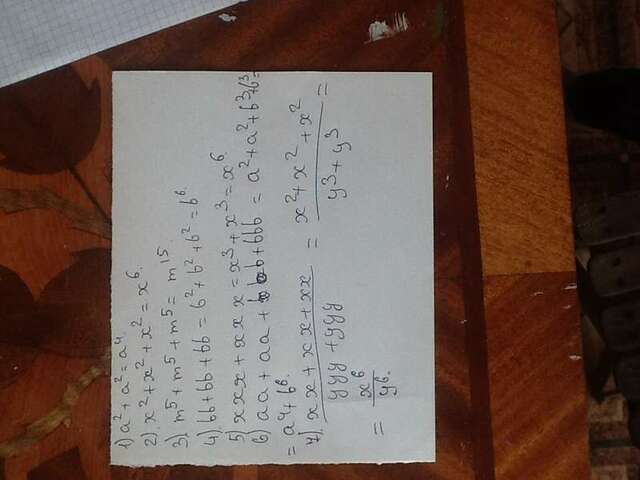 1) a² + a² = a⁴.
2) x² + x² + x² = x⁶.
3) m⁵ + m⁵ + m⁵ = m¹⁵.
4) bb + bb + bb = b² + b² + b² = b⁶.
5) xxx + xxx = x³ + x³ = x⁶.
6) aa + aa + bbb + bbb = a² + a² + b³ + b³ =
= a⁴ + b⁶.
7) (xx + xx + xx) / (yyy + yyy) = (x² + x² + x²) / (y³ + y³) =
= x⁶ / y⁶.